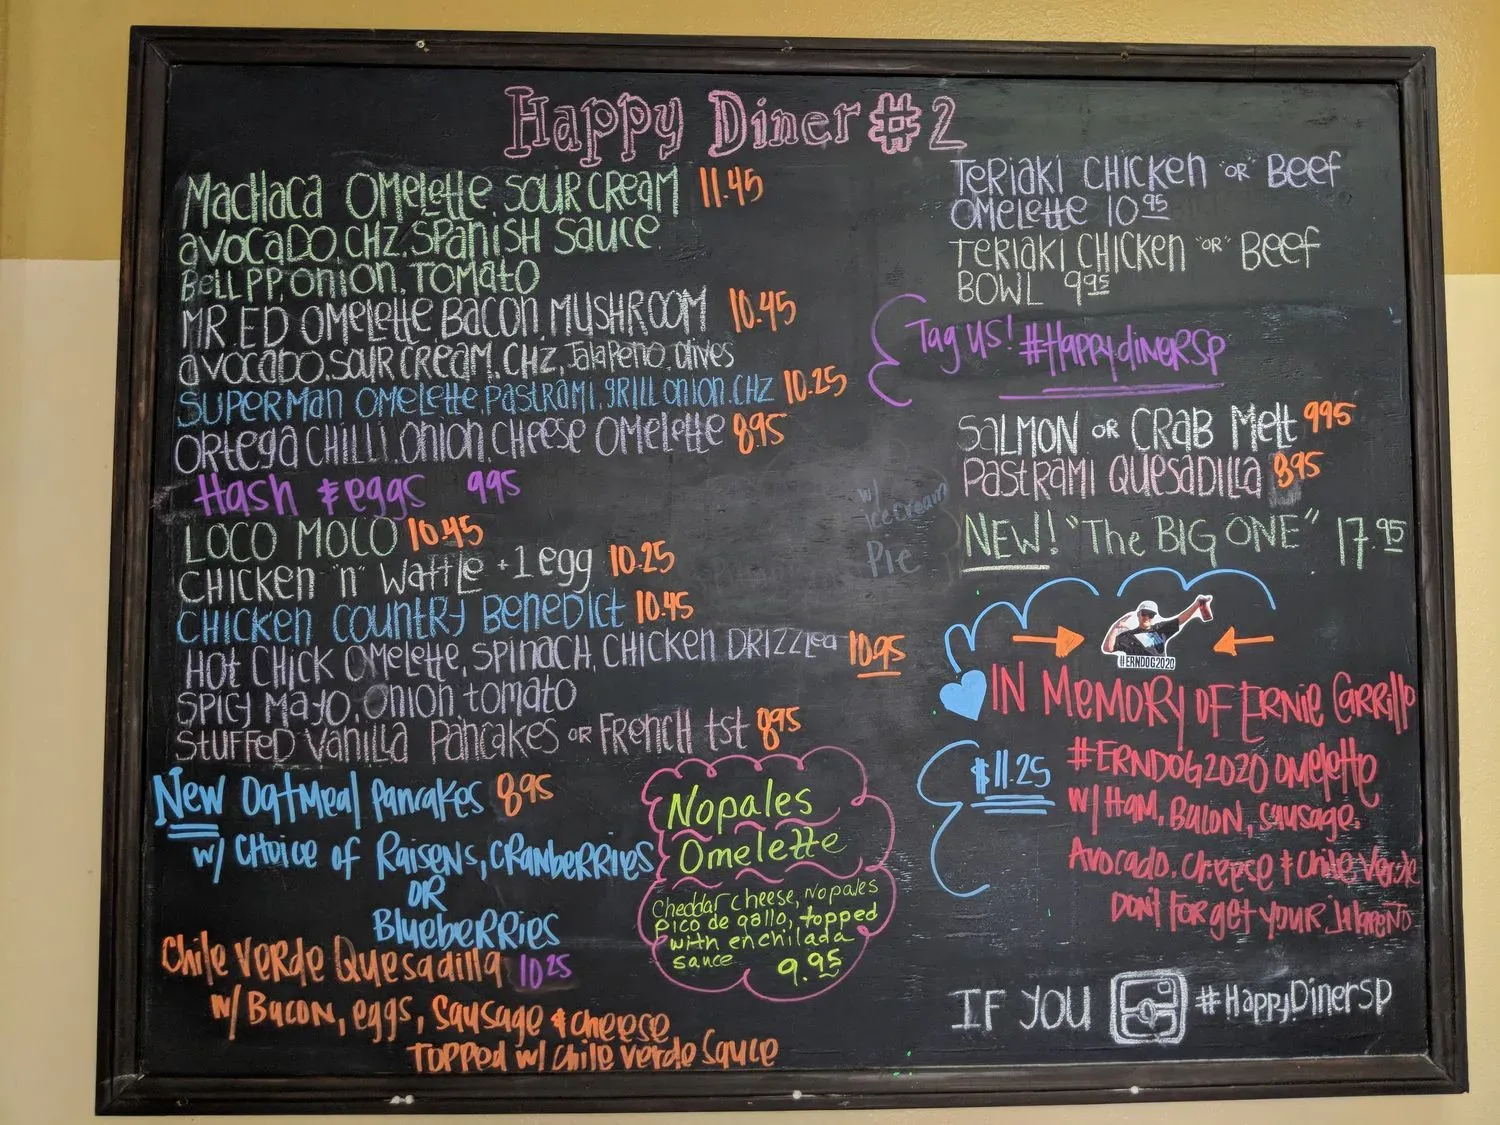 Happy Diner #2
Machaca Omelette, Sour Cream 11.45
avocado, chz, Spanish Sauce
Bell pp, onion, tomato
Mr Ed Omelette, Bacon, Mushroom 10.45
avocado, sour cream, chz, Jalapeno, olives
Superman Omelette, Pastrami, grill onion, chz 10.25
Ortega Chilli, Onion, Cheese Omelette 8.95
Hash & eggs 9.95
Loco Moco 10.45
Chicken "n" Waffle + 1 egg 10.25
Chicken Country Benedict 10.45
Hot Chick Omelette, Spinach, Chicken Drizzled 10.95
Spicy Mayo, Onion tomato
Stuffed Vanilla Pancakes or French tst 8.95
New Oatmeal Pancakes 8.95
w/ Choice of Raisens, Cranberries
OR
Blueberries
Chile Verde Quesadilla 10.25
w/ Bacon, eggs, Sausage & cheese
Topped w/ Chile Verde Sauce
Nopales
Omelette
Cheddar cheese, Nopales
pico de gallo, topped
with enchilada
sauce 9.95
w/
Ice Cream
Pie
Teriaki Chicken "or" Beef
Omelette 10.95
Teriaki Chicken "or" Beef
Bowl 9.95
Tag us! #Happydinersp
Salmon or Crab Melt 9.95
Pastrami Quesadilla 8.95
New! "The Big One" 17.95
#ERNDOG2020
In Memory of Ernie Carrillo
$11.25 #ERNDOG2020 omelette
w/ Ham, Bacon, Sausage,
Avocado, Cheese & Chile Verde
Don't Forget your Jalapeño
IF YOU #HappyDinerSP